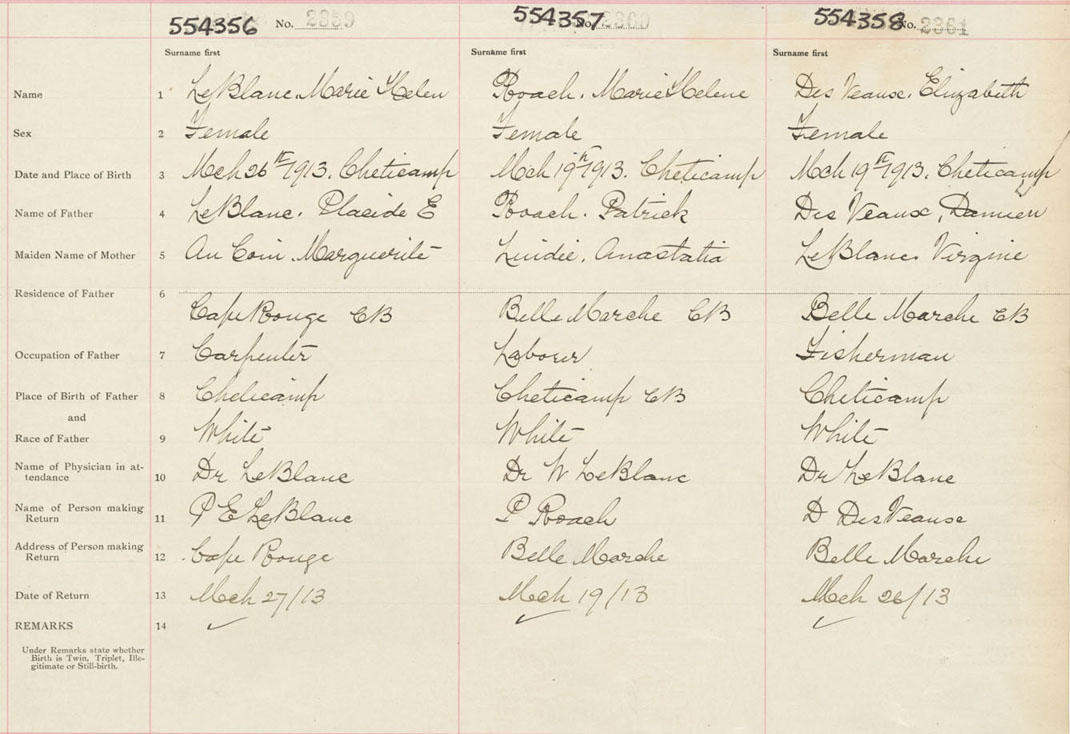 554356 No. 2359 554357 No. 2360 554358 No. 2361
Surname first Surname first Surname first
Name 1 LeBlanc. Marie Helen Roach. Marie Helene Des Veaux. Elizabeth
Sex 2 Female Female Female
Date and Place of Birth 3 Mch 26th 1913. Cheticamp Mch 19th 1913. Cheticamp Mch 19th 1913. Cheticamp
Name of Father 4 LeBlanc. Placide E Roach. Patrick Des Veaux, Damien
Maiden Name of Mother 5 Au Coin Marguerite Anastatia LeBlanc. Virgine
Residence of Father 6
Cape Rouge CB Belle Marche CB Belle Marche CB
Occupation of Father 7 Carpenter Laborer Fisherman
Place of Birth of Father 8 Cheticamp Cheticamp CB Cheticamp
and
Race of Father 9 White White White
Name of Physician in at-
tendance 10 Dr LeBlanc Dr W LeBlanc Dr LeBlanc
Name of Person making
Return 11 P E LeBlanc P Roach D DesVeaux
Address of Person making
Return 12 Cape Rouge Belle Marche Belle Marche
Date of Return 13 Mch 27/13 Mch 19/13 Mch 26/13
REMARKS 14
Under Remarks state whether
Birth is Twin, Triplet, Ille-
gitimate or Still-birth.